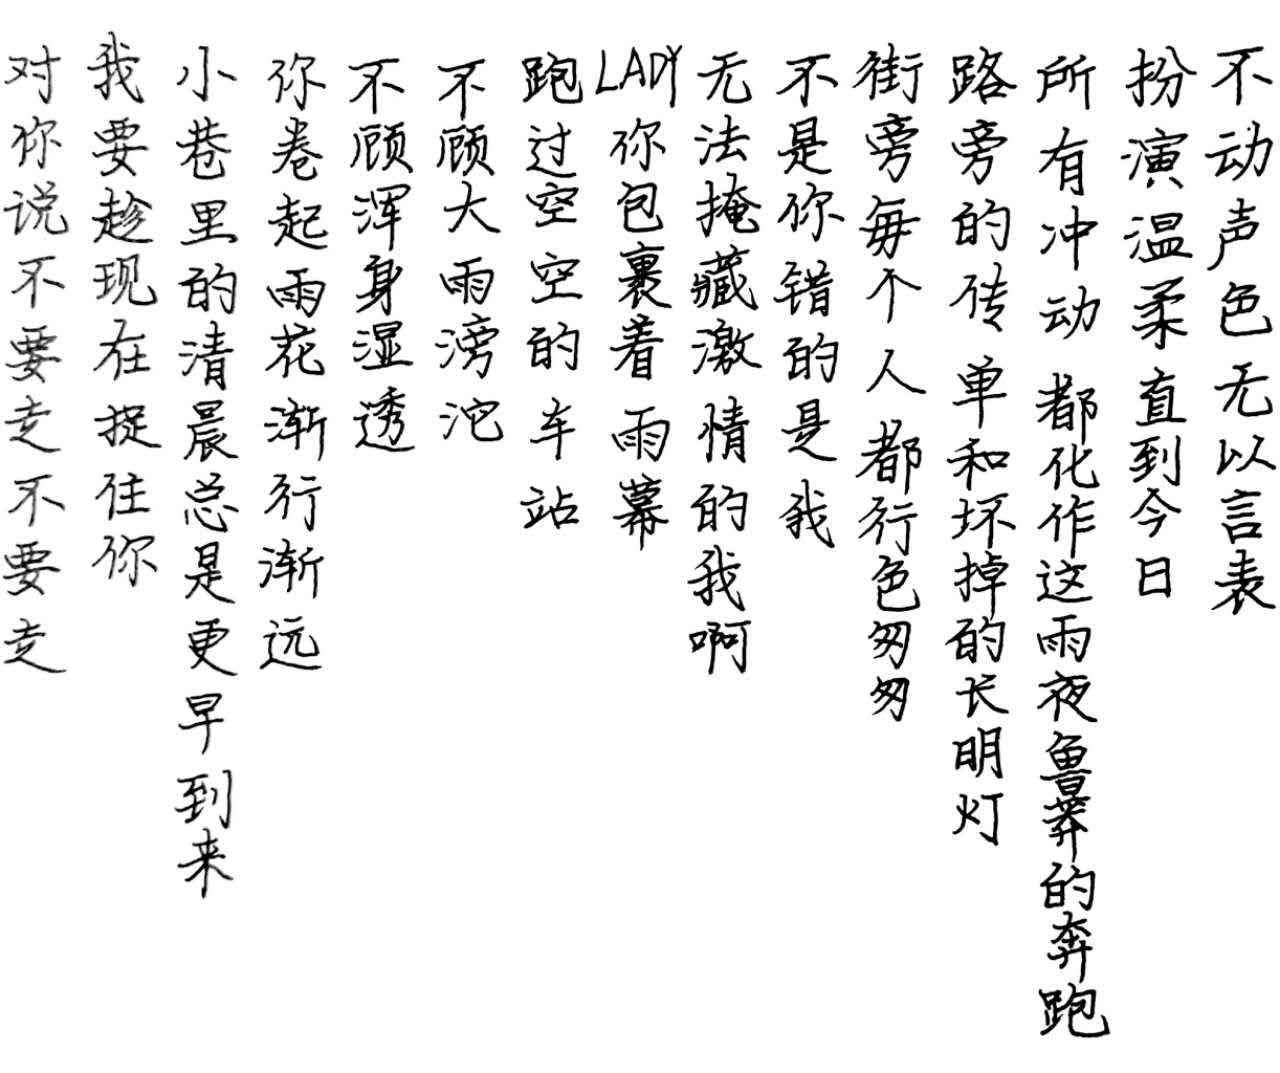 不动声色无以言表
扮演温柔直到今日
所有冲动都化作这雨夜鲁莽的奔跑
路旁的传单和坏掉的长明灯
街旁每个人都行色匆匆
不是你错的是我
无法掩藏激情的我啊
LADY你包裹着雨幕
跑过空空的车站
不顾大雨滂沱
不顾浑身湿透
你卷起雨花渐行渐远
小巷里的清晨总是更早到来
我要趁现在捉住你
对你说不要走不要走